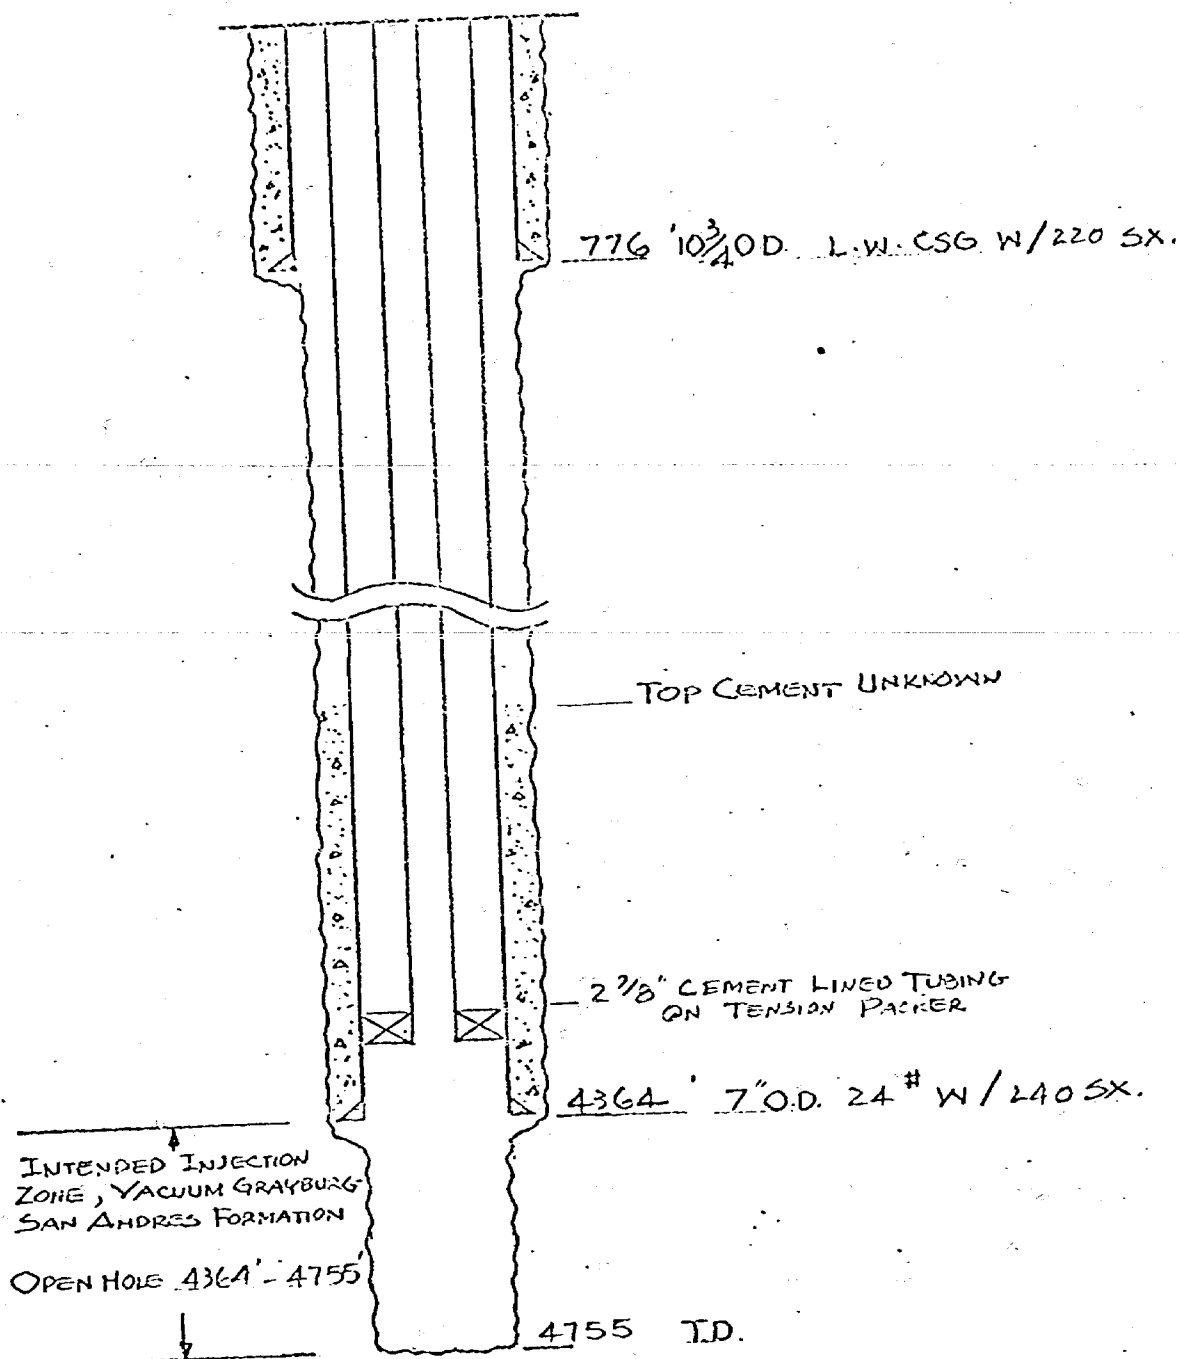 776 '10 3/4 OD. L.W. CSG W/220 SX.
TOP CEMENT UNKNOWN
2 7/8" CEMENT LINED TUBING
ON TENSION PACKER
4364 ' 7" O.D. 24 # W/240 SX.
INTENDED INJECTION
ZONE, VACUUM GRAYBURG-
SAN ANDRES FORMATION
OPEN HOLE 4364'-4755'
4755 T.D.